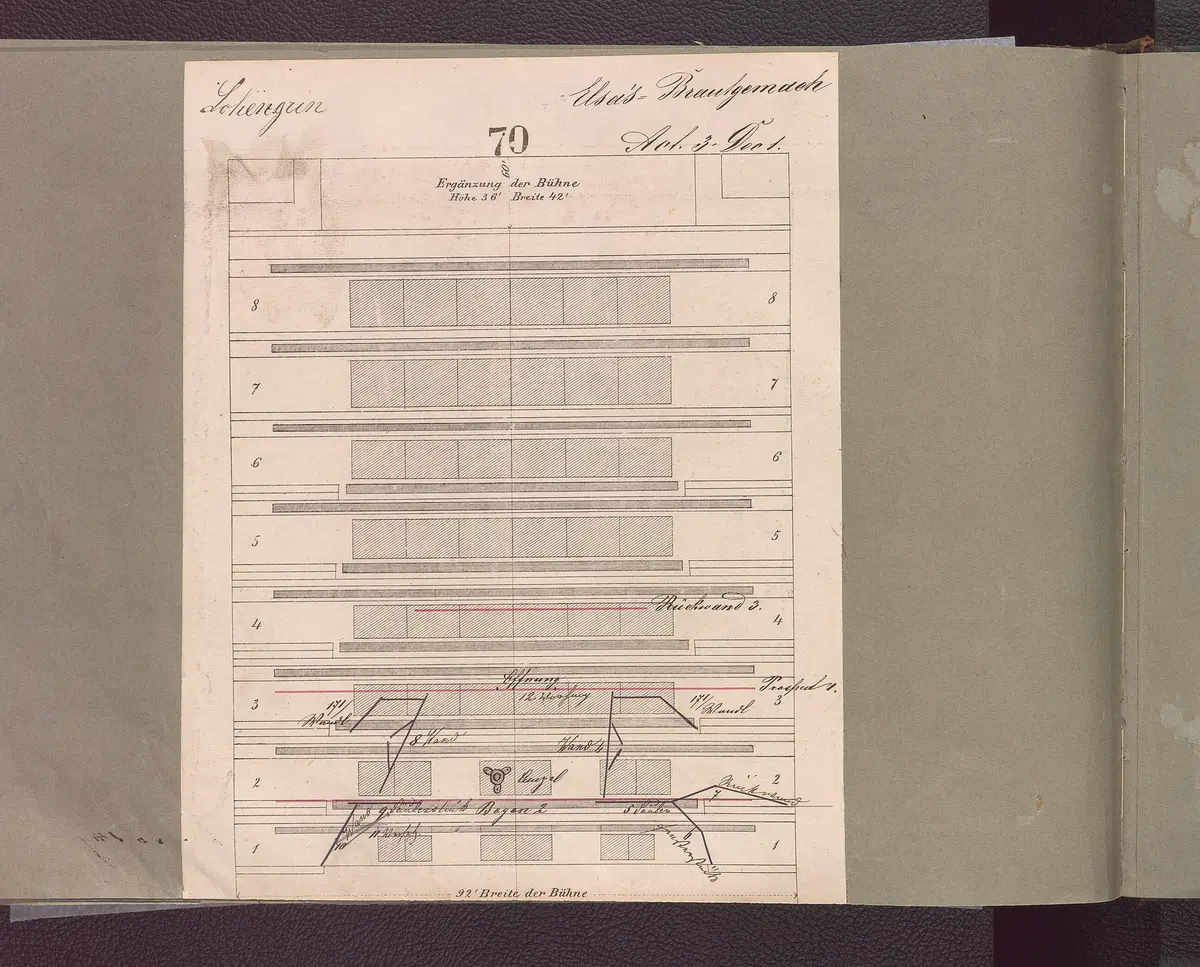 Lohengrin
Elsa's = Brautgemach
70
Act. 3. Dec 1.
60'
Ergänzung der Bühne
Höhe 36' Breite 42'
8 8
7 7
6 6
5 5
Rückwand 3.
4 4
Öffnung
Prospect 1.
12
3 3
Wandl
Wandl
8 Wand
Wand 4
2 2
Rückwand
7
9 Säulenstück Bogen 2
5 Säulen
Wand
10
11
6
1 1
92' Breite der Bühne